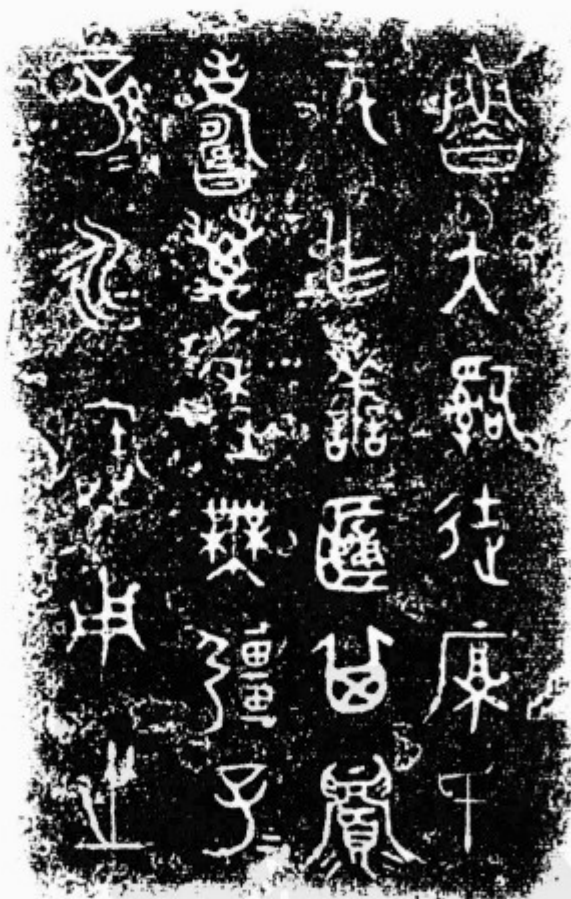 魯大𤔲徒厚氏
元乍善匍其眉
壽萬年無疆子=
孫=永寶用之